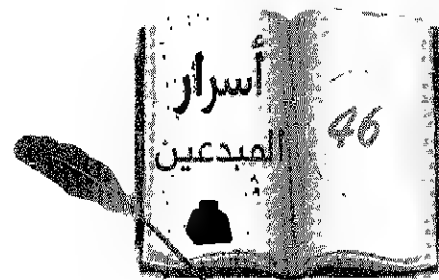 أسرار
المبدعين
46